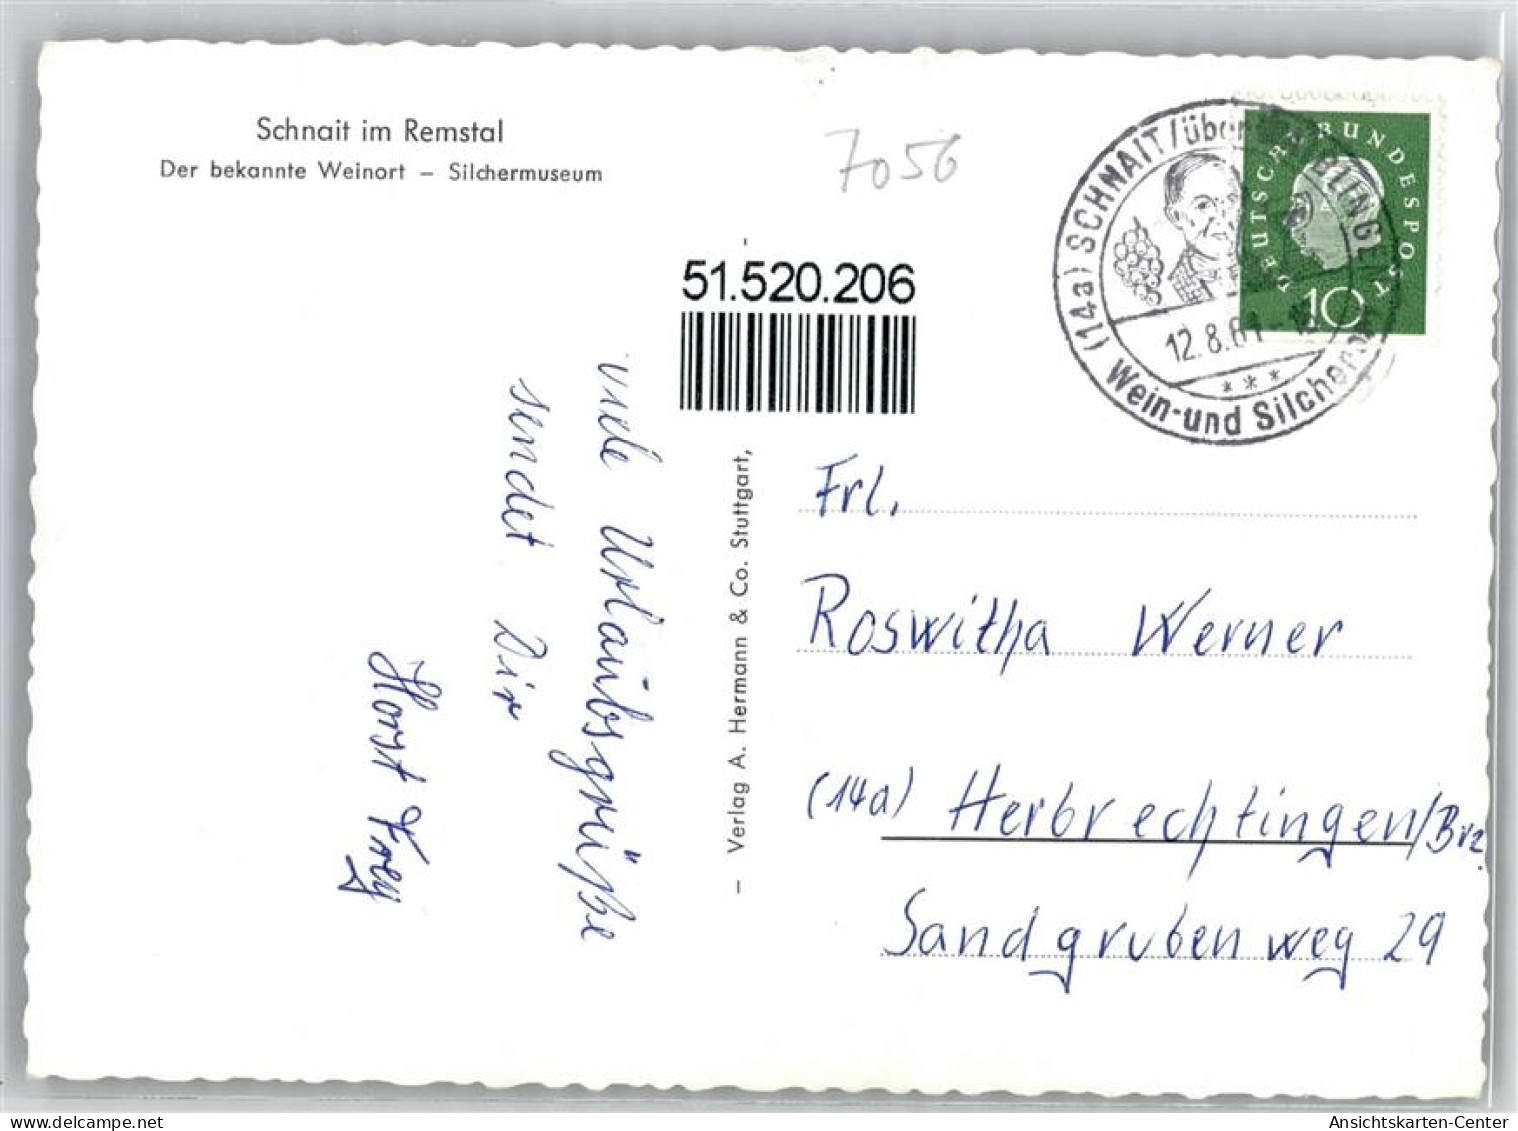 Schnait im Remstal
Der bekannte Weinort – Silchermuseum
7056
51.520.206
(14a) SCHNAIT/über
12.8.61
Wein-und Silcherort
DEUTSCHE BUNDESPOST
10
viele Urlaubsgrüße
sendet Dir
Horst Frey
– Verlag A. Hermann & Co. Stuttgart,
Frl.
Roswitha Werner
(14a) Herbrechtingen/Brz.
Sandgrubenweg 29
Ansichtskarten-Center